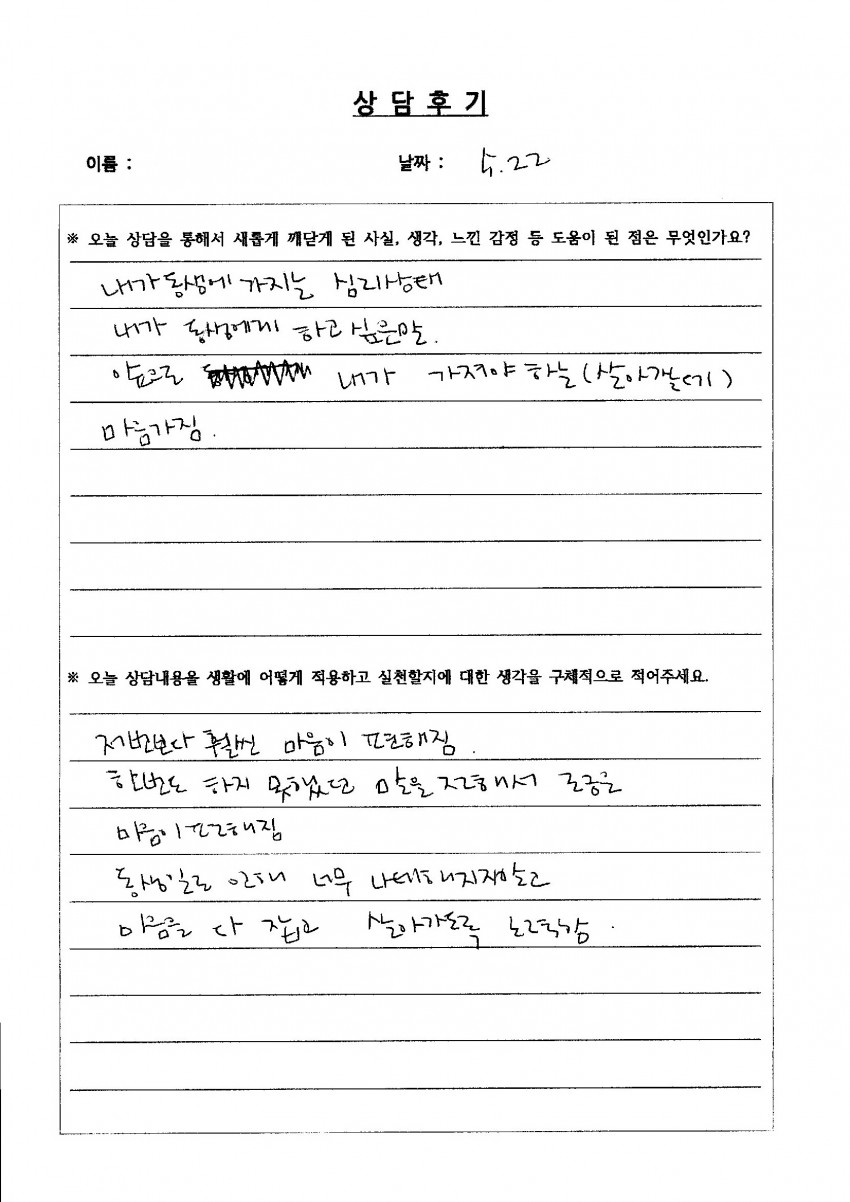 상 담 후 기
이름 :
날짜 : 5.22
※ 오늘 상담을 통해서 새롭게 깨닫게 된 사실, 생각, 느낀 감정 등 도움이 된 점은 무엇인가요?
내가 동생에 가지는 심리상태
내가 동생에게 하고 싶은말.
앞으로 내가 가져야 하는 (살아갈 때)
마음가짐.
※ 오늘 상담내용을 생활에 어떻게 적용하고 실천할지에 대한 생각을 구체적으로 적어주세요.
저번보다 훨씬 마음이 편해짐.
한번도 하지 못했던 말을 전해서 조금은
마음이 편해짐
동생일로 인해 너무 나태해지지않고
마음을 다 잡고 살아가도록 노력함.